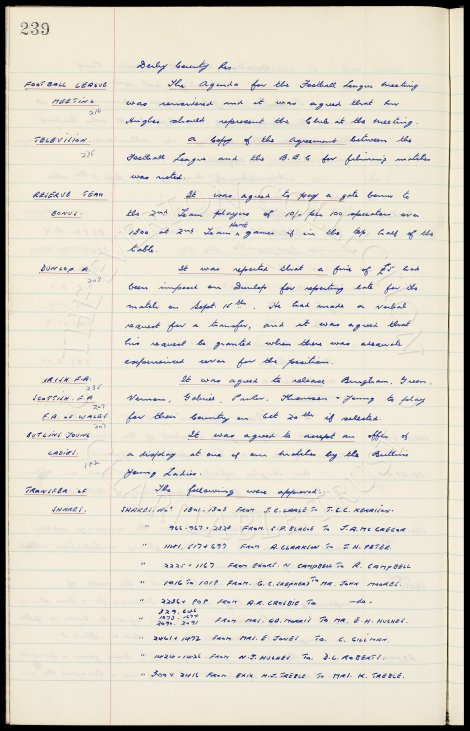 239
Derby County Res.
FOOTBALL LEAGUE MEETING. 216
The Agenda for the Football League meeting
was considered and it was agreed that Mr
Hughes should represent the Club at the meeting.
TELEVISION. 235
A Copy of the Agreement between the
Football League and the B.B.C for filming matches
was noted.
RESERVE TEAM BONUS.
It was agreed to pay a gate bonus to
the 2nd Team players of 10/- per 100 spectators over
1300 at 2nd Team Home games if in the top half of the
table.
DUNLOP. A. 207
It was reported that a fine of £5 had
been imposed on Dunlop for reporting late for the
match on Sept 15th. He had made a verbal
request for a transfer, and it was agreed that
his request be granted when there was adequate
experienced cover for the position.
IRISH F.A. 235
SCOTTISH. F.A 207
F.A. OF WALES 207
It was agreed to release Bingham, Green,
Vernon, Gabriel, Parker, Thomson & Young to play
for their Country on Oct 20th if selected.
BUTLINS YOUNG LADIES.
It was agreed to accept an offer of
a display at one of our matches by the Butlins
Young Ladies.
TRANSFER OF SHARES.
The following were approved:
SHARES. Nos 1801-1803 FROM J.C. to T.C.C. KERRISON.
" 966-967 + 2328 FROM. C.P. BLACKIE TO J.A. MCGREGOR
" 517 + 677 FROM A CLARKSON TO J.H. PETER.
" 2225 + 1167 FROM EXORS. N CAMPBELL TO R. CAMPBELL
" 1916 TO 1918 FROM. G.C. SHEPHERD TO MR. JOHN MOORES.
" 2236 + 908 FROM A.R. CROSBIE TO —do—
" 1673-1677 2090-2091 FROM MRS. MORRIS TO MR. E.H. HUGHES.
" 2461 + 1492 FROM MRS. E. JONES TO. C. GILLMAN
" 1424-1426 FROM N.J. HUGHES TO. D.L. ROBERTS.
" 3004 2416 FROM EXIX H.J. TREBLE TO MRS. K. TREBLE.